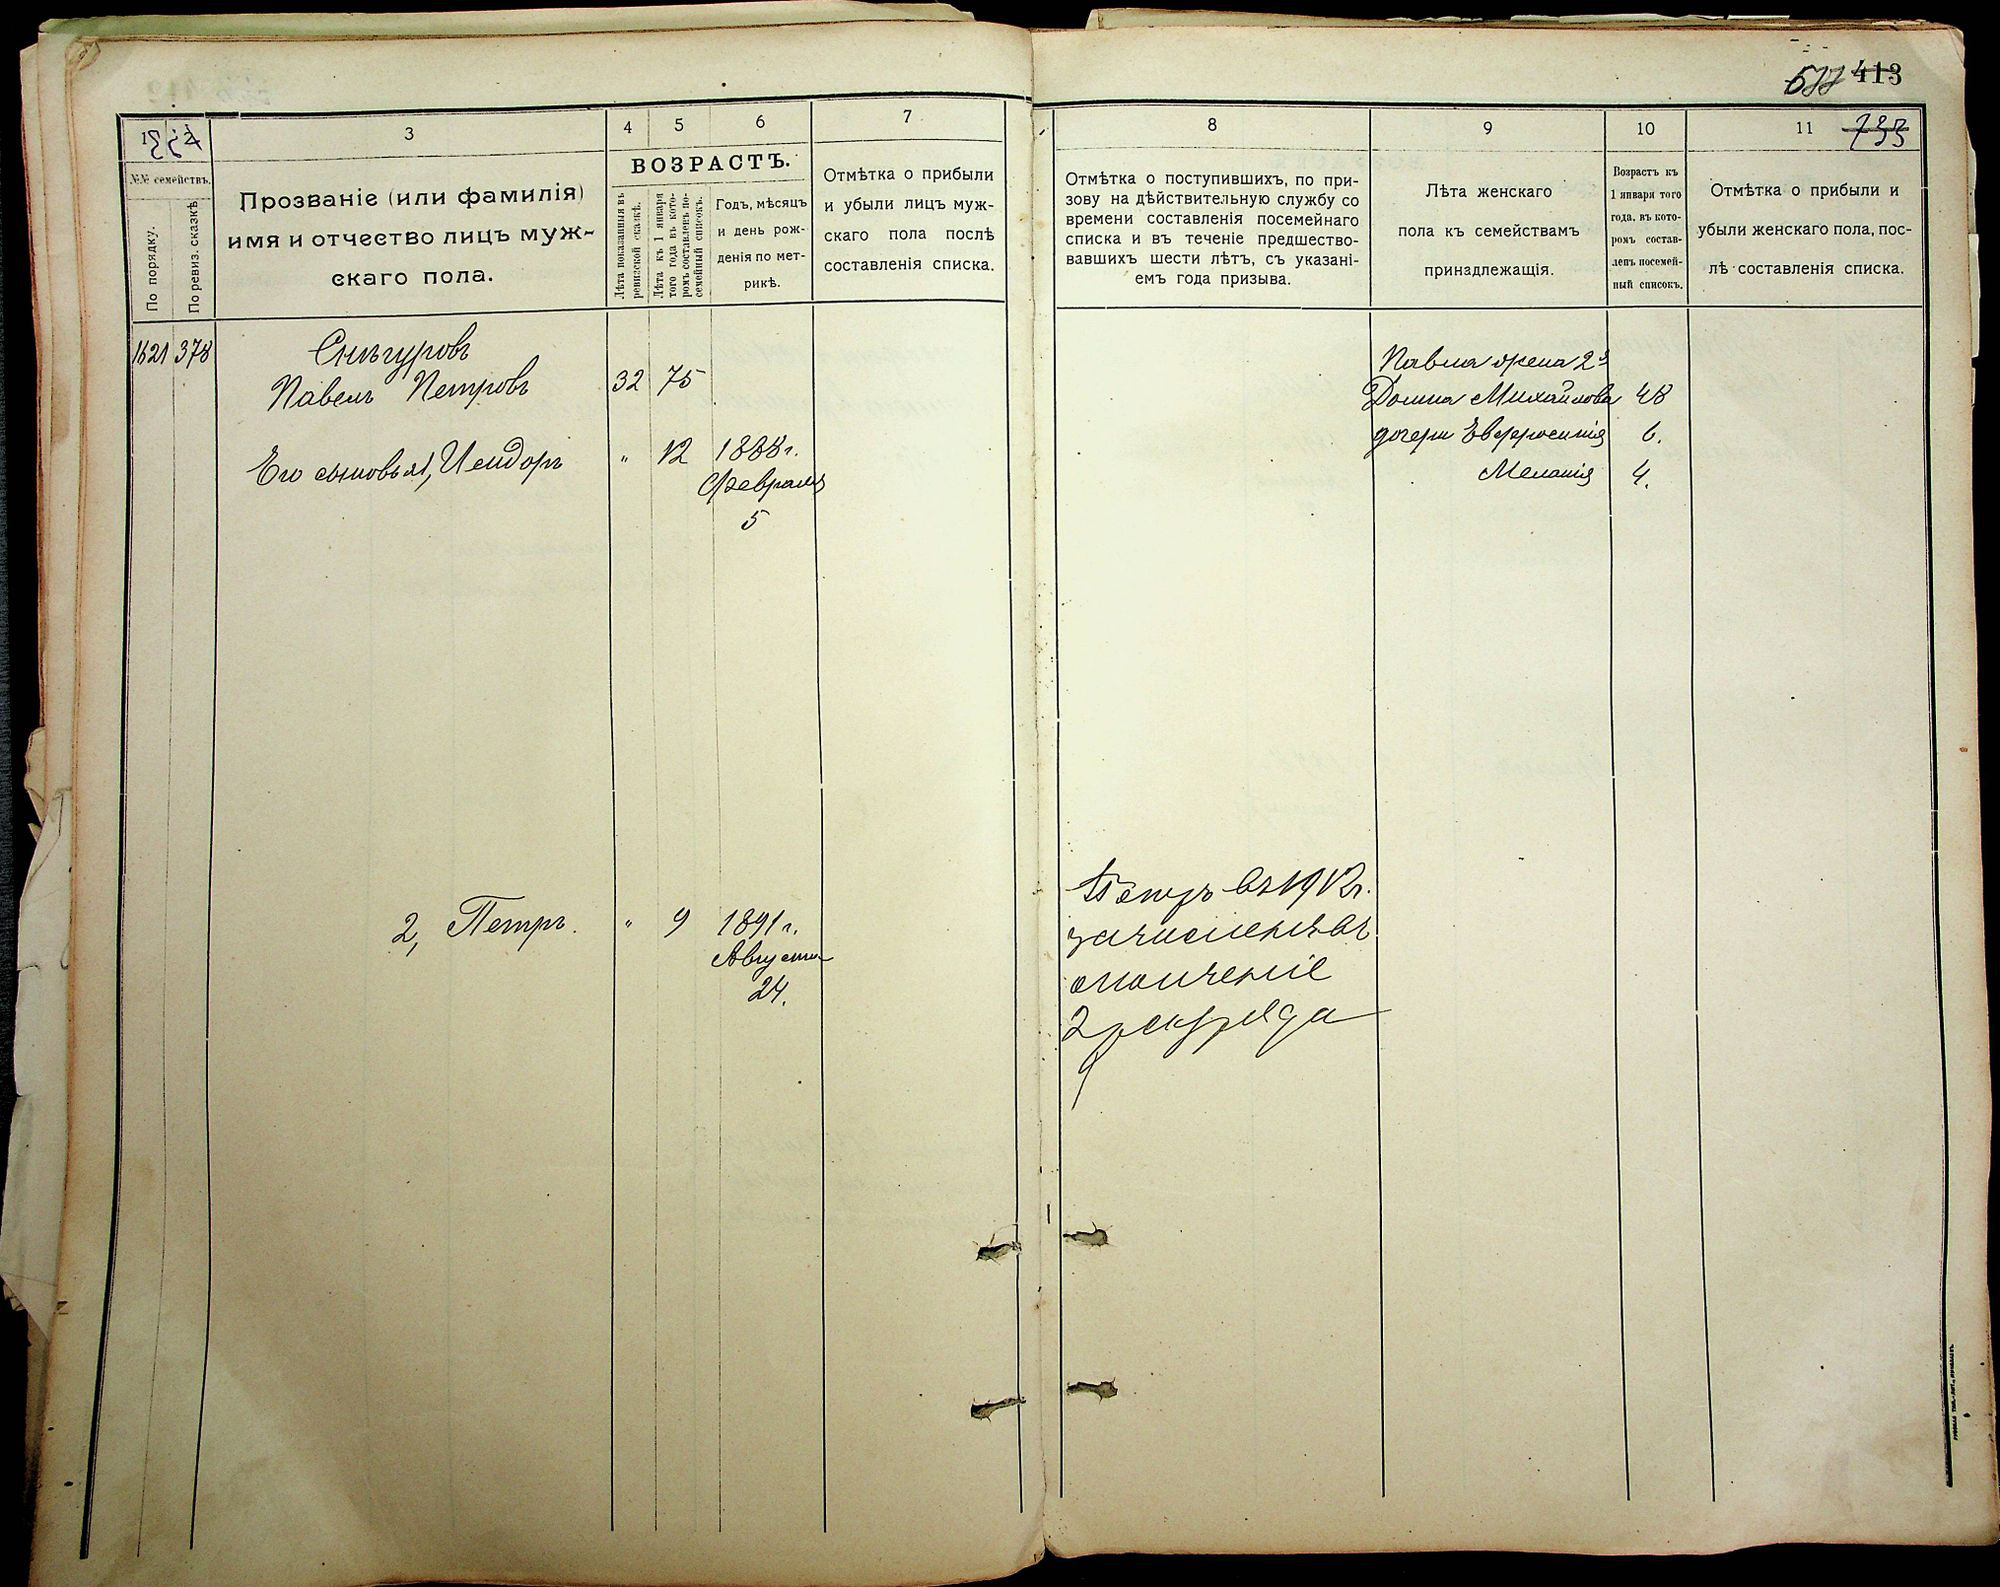 413
1
2
3
4
5
6
7
№№ семействъ.
По порядку.
По ревиз. сказкѣ.
Прозваніе (или фамилія)
имя и отчество лицъ муж-
скаго пола.
ВОЗРАСТЪ.
Лѣта показанныя въ
ревизской сказкѣ.
Лѣта къ 1 января
того года въ кото-
ромъ составленъ по-
семейный списокъ.
Годъ, мѣсяцъ
и день рож-
денія по мет-
рикѣ.
Отмѣтка о прибыли
и убыли лицъ муж-
скаго пола послѣ
составленія списка.
1621 378
Снѣгуровъ
Павелъ Петровъ 32 75
Его сыновья 1, Исидоръ „ 12 1888 г.
Февраля
5
2, Петръ. „ 9 1891 г.
Августа
24.
8
9
10
11
733
Отмѣтка о поступившихъ, по при-
зову на дѣйствительную службу со
времени составленія посемейнаго
списка и въ теченіе предшество-
вавшихъ шести лѣтъ, съ указані-
емъ года призыва.
Лѣта женскаго
пола къ семействамъ
принадлежащія.
Возрастъ къ
1 января того
года, въ кото-
ромъ состав-
ленъ посемей-
ный списокъ.
Отмѣтка о прибыли и
убыли женскаго пола, пос-
лѣ составленія списка.
Павла жена 2я
Домна Михайлова 48
дочери Евфросинія 6.
Меланія 4.
Петръ въ 1912 г.
зачисленъ въ
ополченіе
2 разряда